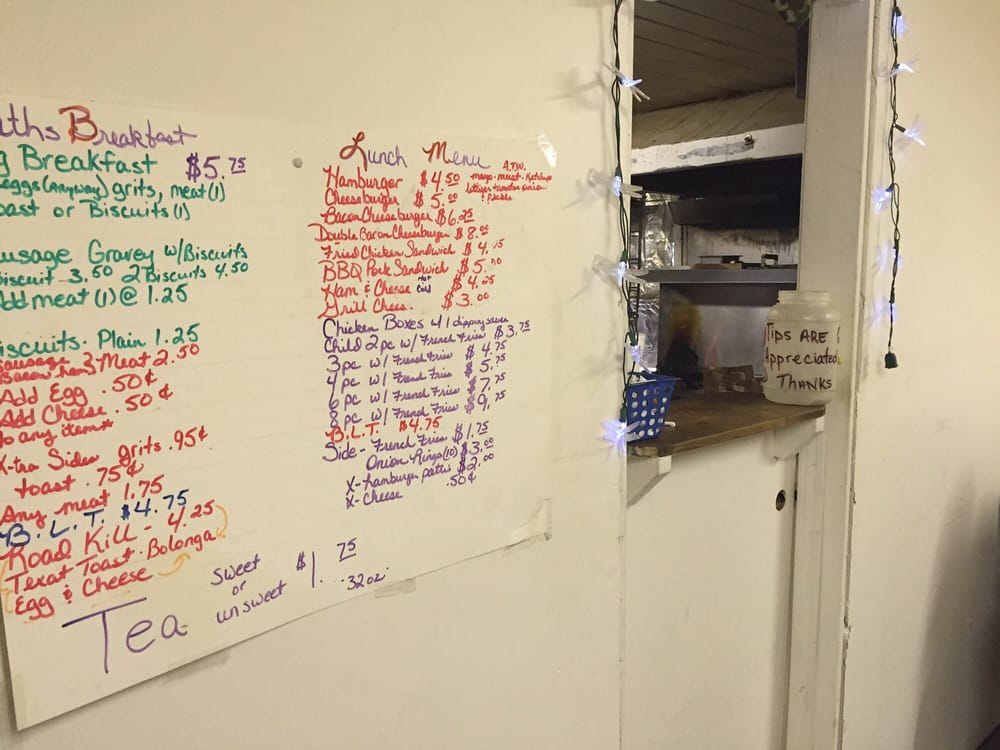 uths Breakfast
g Breakfast $5.75
eggs (Anyway) grits, meat (1)
oast or Biscuits (1)
usage Gravey w/Biscuits
Biscuit 3.50 2 Biscuits 4.50
Add meat (1) @ 1.25
iscuits. Plain 1.25
Sausage Meat 2.50
Bacon, ham,
Add Egg .50¢
Add Cheese .50¢
to any item
X-tra Sides grits .95¢
toast .75¢
Any meat 1.75
B.L.T. $4.75
Road Kill - 4.25
Texat Toast. Bolonga
Egg & Cheese
Tea sweet or unsweet $1.75
32oz.
Lunch Menu
Hamburger $4.50
Cheeseburger $5.00
Bacon Cheeseburger $6.25
Double Bacon Cheeseburger $8.00
Fried Chicken Sandwich $4.75
BBQ Pork Sandwich $5.00
Ham & Cheese Hot Cold $4.25
Grill Chees. $3.00
Chicken Boxes w/ 1 dipping sauce
Child 2pc w/ French Fries $3.75
3pc w/ French Fries $4.75
4pc w/ French Fries $5.75
6pc w/ French Fries $7.75
8pc w/ French Fries $9.75
B.L.T. $4.75
Side - French Fries $1.75
Onion Rings (10) $3.00
X-hamburger pattis $2.00
X-cheese .50¢
Tips ARE
Appreciated
THANKS